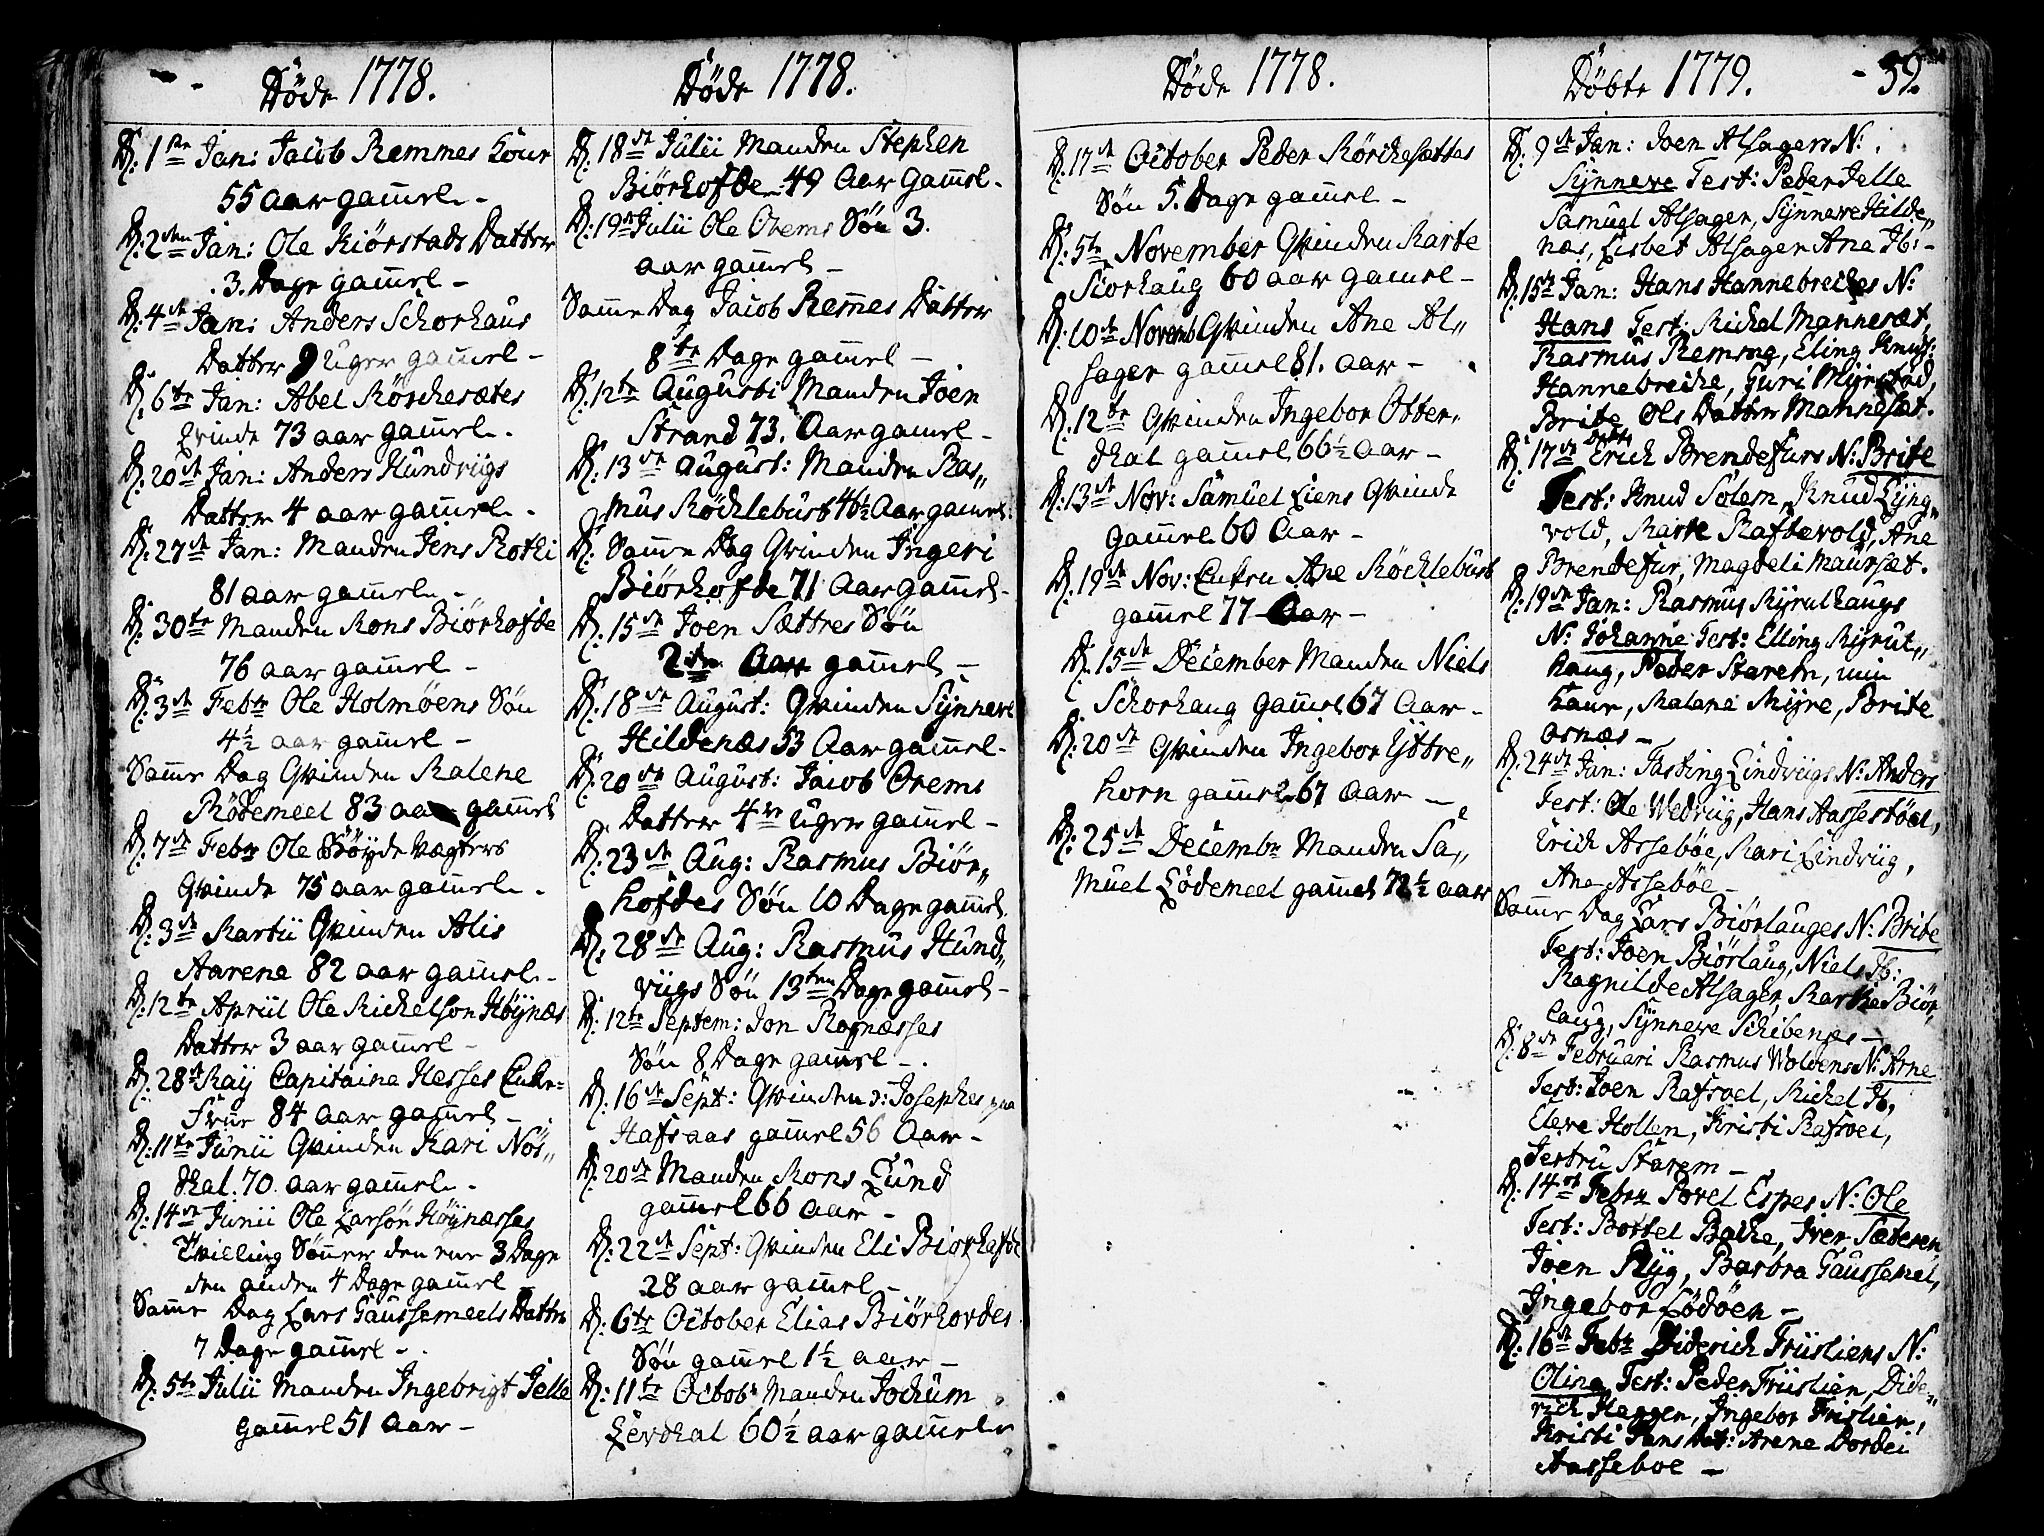 Døde 1778.
D: 1ste Jan: Jacob Remmes Kone
55 aar gammel.
D: 2den Jan: Ole Kiørstads Datter
3. Dage gammel
D: 4de Jan: Anders Schorhaus
Datter 9 Uger gammel
D: 6te Jan: Abel Rørchesætes
Qvinde 73 aar gammel.
D: 20de Jan: Anders Hundviigs
Datter 4 aar gammel.
D: 27de Jan: Manden Jens Rothi
81 aar gammel.
D: 30te Manden Mons Biørhofde
76 aar gammel
D: 3de Febr Ole Holmøens Søn
4½ aar gammel
Samme Dag Qvinden Malene
Rødemeel 83 aar gammel
D: 7de Febr Ole Bøyde vægters
Qvinde 75 aar gammel.
D: 3de Martii Qvinden Alis
Aarene 82 aar gammel.
D: 12te Apriil Ole Michelson Høynæs
Datter 3 aar gammel
D: 28de May Capitaine Hesses Enke-
Frue 84 aar gammel
D: 11te Junii Qvinden Kari Nøs„
dkal. 70. aar gammel.
D: 14de Junii Ole Larsøn Høynæsses
Tvilling Sønner den ene 3 Dage
den anden 4 Dage gammel
Samme Dag Lars Gaussemeels Datter
7 Dage gammel
D: 5te Julii Manden Ingebrigt Jelle
gammel 51 Aar
Døde 1778.
D: 18de Julii Manden Stephen
Biørhofde 49 Aar Gammel.
D: 19de Julii Ole Orems Søn 3.
aar gammel
Samme Dag Jacob Remmes Datter
8te Dage gammel
D: 12te Augusti Manden Joen
Strand 73. Aar gammel
D: 13de August: Manden Ras„
mus Røchlebust 46½ Aar gammel
D: Samme Dag Qvinden Ingeri
Biørhofde 71 Aar gammel.
D: 15de Joen Sættres Søn
2de Aar gammel
D: 18de August: Qvinden Synneve
Hildenæs 53 Aar gammel.
D: 20de August: Jacob Orems
Datter 4re Uger gammel
D: 23de Aug: Rasmus Biør„
hofdes Søn 10 Dage gammel.
D: 28de Aug: Rasmus Hund„
viigs Søn 13ten Dage gammel
D: 12te Septem: Jon Rognæsses
Søn 8 Dage gammel
D: 16de Sept: Qvinden Josephes paa
Hafsaas gammel 56 Aar
D: 20de Manden Mons Lund
gammel 66 aar
D: 22de Sept: Qvinden Eli Biorhofde
28 aar gammel
D: 6te October Elias Biørhordes
Søn gammel 1½ aar
D: 11te Octobr Manden Jochum
Lerdkal 60½ aar gammel
Døde 1778.
D: 17de October Peder Rørchesættes
Søn 5. Dage gammel
D: 5te November Qvinden Marte
Siorhaug 60 aar gamel
D: 10de Novemb Qvinden Ane Al„
sager gammel 81. aar
D: 12te Qvinden Ingebor Otter„
dkal gammel 66½ aar
D: 13de Nov: Samuel Liens Qvinde
Gammel 60 Aar
D: 19de Nov: Enken Ane Røchlebust
gammel 77 Aar
D: 15de December Manden Niels
Schorhaug gammel 67 Aar
D: 20de Qvinden Ingebor Yttre„
horn gammel 67 Aar
D: 25de Decembr Manden Sa„
muel Lødemeel gammel 72½ aar
Døbte 1779. 39.
D: 9de Jan: Joen Alsagers N:
Synneve Test: Peder Jelle
Samuel Alsager, Synneve Hilde„
næs, Lisbet Alsager Ane Ib:
D: 15de Jan: Hans Hannebreches N:
Hans Test: Michel Mannesæt,
Rasmus Remme, Eling Knuds:
Hannebreche, Guri Myrstad,
Brite Ols Datter Mannesæt.
D: 17de Erich Brendefurs N: Brite
Test: Knud Solem, Knud Lyng„
vold, Marte Raftevold, Ane
Brendefur, Magdeli Maursæt.
D: 19de Jan: Rasmus Myrulhaugs
N: Johanne Test: Elling Myrul„
haug, Peder Starem, min
Kaane, Malene Myre, Brite
arnæs
D: 24de Jan: Tasting Lindviigs N: Anders
Test: Ole Wedviig, Hans Aassestøel,
Erich Assebøe, Kari Lindviig,
Ane Assebøe
Samme Dag Lars Biørlauges N: Brite
Test: Joen Biørlaug, Niels Ib:
Ragnilde Alsager, Marthe Biør„
laug, Synneve Schibenes
D: 8de Februari Rasmus Woldens N: Arne
Test: Joen Rafsvel, Michel Ib,
Eleve Hollen, Kristi Rafsvel,
Jertru Starem
D: 14de Febru Povel Espes N: Ole
Test: Bottel Bache, Iver Sæteren
Joen Ryg, Barbra Gaussemel,
Ingebor Lødøen
D: 16de Febr Diderich Friisliens N:
Olina Test: Peder Friislien, Dide„
rich Haggen, Ingebor Frislien,
Kristi Hans Dat: Arene Dordei
Aasseboe